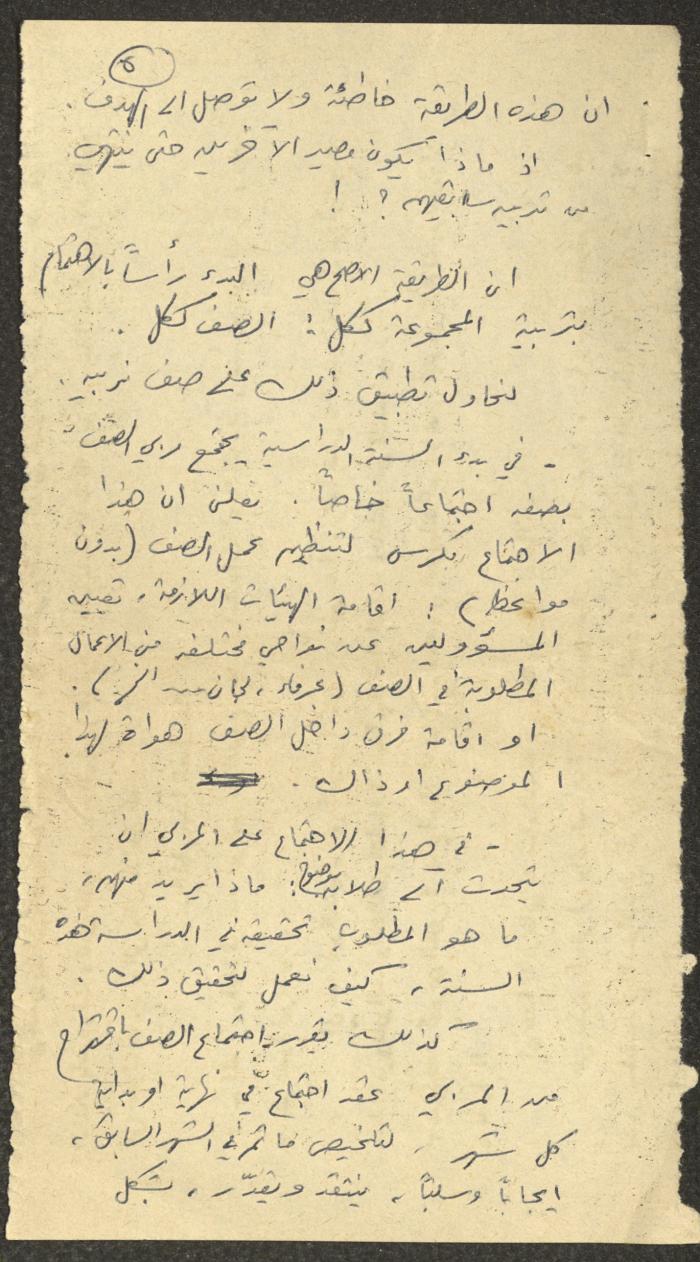 ٥
ان هذه الطريقة خاطئة ولا توصل الى الهدف.
اذ ماذا يكون مصير الآخرين حتى ننتهي
من تربية سابقيهم ؟ !
ان الطريقة الاصح هي البدء رأساً بالاهتمام
بتربية المجموعة ككل : الصف ككل .
لنحاول تطبيق ذلك على صف نربيه .
- في بدء السنة الدراسية يجتمع مربي الصف
بصفه اجتماعاً خاصاً . يعلن ان هذا
الاجتماع مكرس لتنظيم عمل الصف (بدون
مواعظ) : اقامة الهيئات اللازمة ، تعيين
المسؤولين عن نواحي مختلفة من الاعمال
المطلوبة في الصف (عرفاء ، لجان ... الخ) .
او اقامة فرق داخل الصف هواة لهذا
الموضوع او ذاك .
- في هذا الاجتماع على المربي ان
يتحدث الى طلابه بوضوح : ماذا يريد منهم ،
ما هو المطلوب تحقيقه في الدراسة هذه
السنة ، كيف نعمل لتحقيق ذلك .
كذلك يقرر اجتماع الصف باقتراح
من المربي عقد اجتماع في نهاية او بداية
كل شهر ، لتلخيص ما تم في الشهر السابق ،
ايجاباً وسلباً ، ينتقد ويقدّر ، بشكل